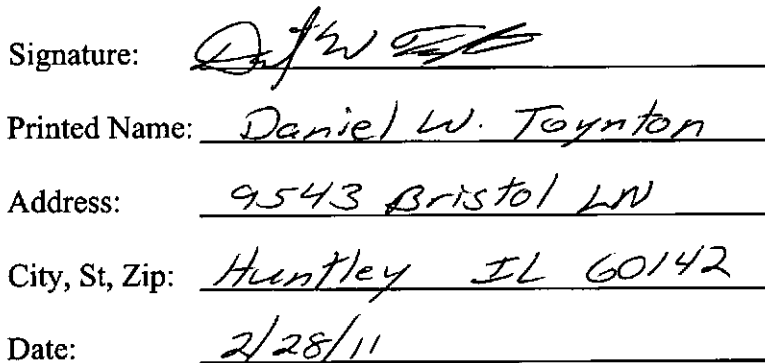 Signature:
Printed Name: Daniel W. Toynton
Address: 9543 Bristol LN
City, St, Zip: Huntley IL 60142
Date: 2/28/11